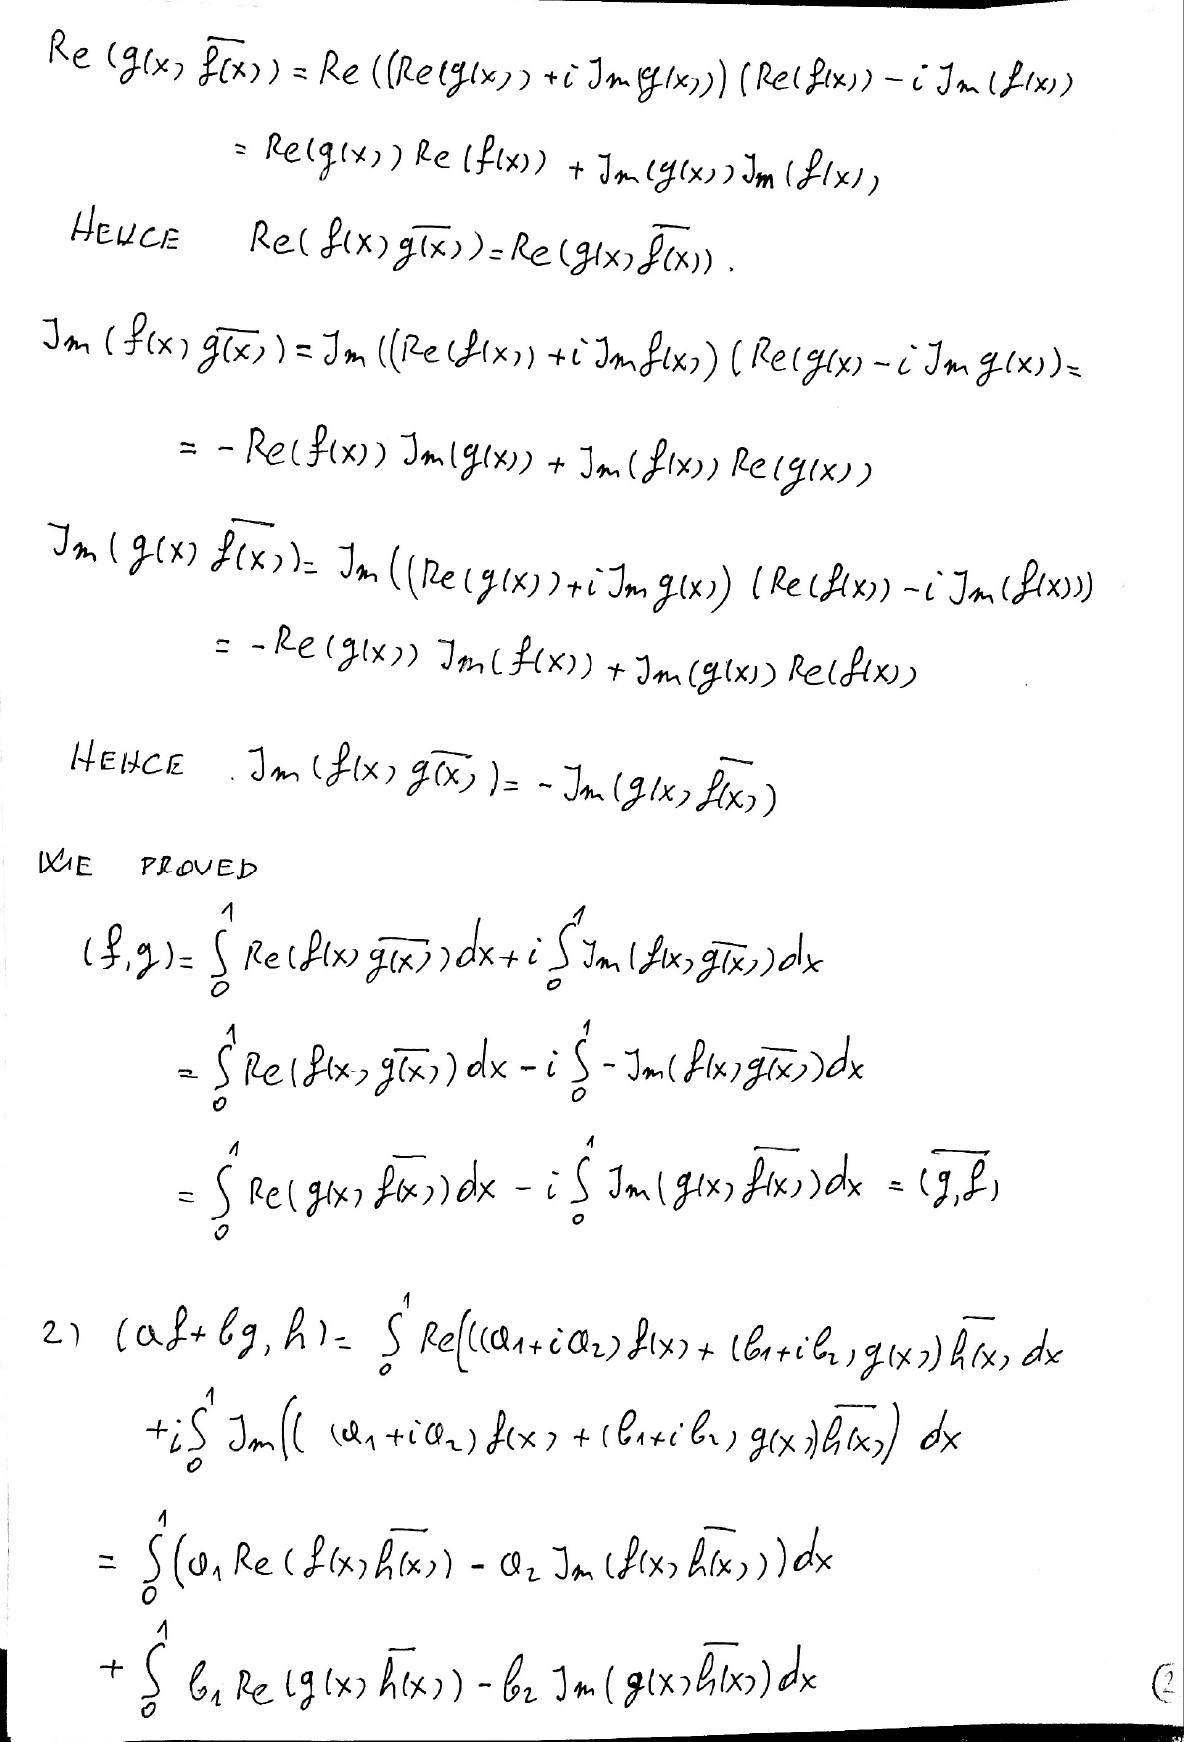 Re(g(x) \overline{f(x)}) = Re((Re(g(x)) + i Im(g(x)))(Re(f(x)) - i Im(f(x))
= Re(g(x)) Re(f(x)) + Im(g(x)) Im(f(x))
HENCE Re(f(x) \overline{g(x)}) = Re(g(x) \overline{f(x)}).
Im(f(x) \overline{g(x)}) = Im((Re(f(x)) + i Im f(x))(Re(g(x) - i Im g(x)) =
= - Re(f(x)) Im(g(x)) + Im(f(x)) Re(g(x))
Im(g(x) \overline{f(x)}) = Im((Re(g(x)) + i Im g(x))(Re(f(x)) - i Im(f(x)))
= - Re(g(x)) Im(f(x)) + Im(g(x)) Re(f(x))
HENCE Im(f(x) \overline{g(x)}) = - Im(g(x) \overline{f(x)})
WE PROVED
(f,g) = ∫_0^1 Re(f(x) \overline{g(x)}) dx + i ∫_0^1 Im(f(x) \overline{g(x)}) dx
= ∫_0^1 Re(f(x) \overline{g(x)}) dx - i ∫_0^1 - Im(f(x) \overline{g(x)}) dx
= ∫_0^1 Re(g(x) \overline{f(x)}) dx - i ∫_0^1 Im(g(x) \overline{f(x)}) dx = \overline{(g,f)}
2) (af + bg, h) = ∫_0^1 Re(((a_1 + i a_2) f(x) + (b_1 + i b_2) g(x)) \overline{h(x)} dx
+ i ∫_0^1 Im(( (a_1 + i a_2) f(x) + (b_1 + i b_2) g(x)) \overline{h(x)}) dx
= ∫_0^1 (a_1 Re(f(x) \overline{h(x)}) - a_2 Im(f(x) \overline{h(x)})) dx
+ ∫_0^1 b_1 Re(g(x) \overline{h(x)}) - b_2 Im(g(x) \overline{h(x)}) dx
2